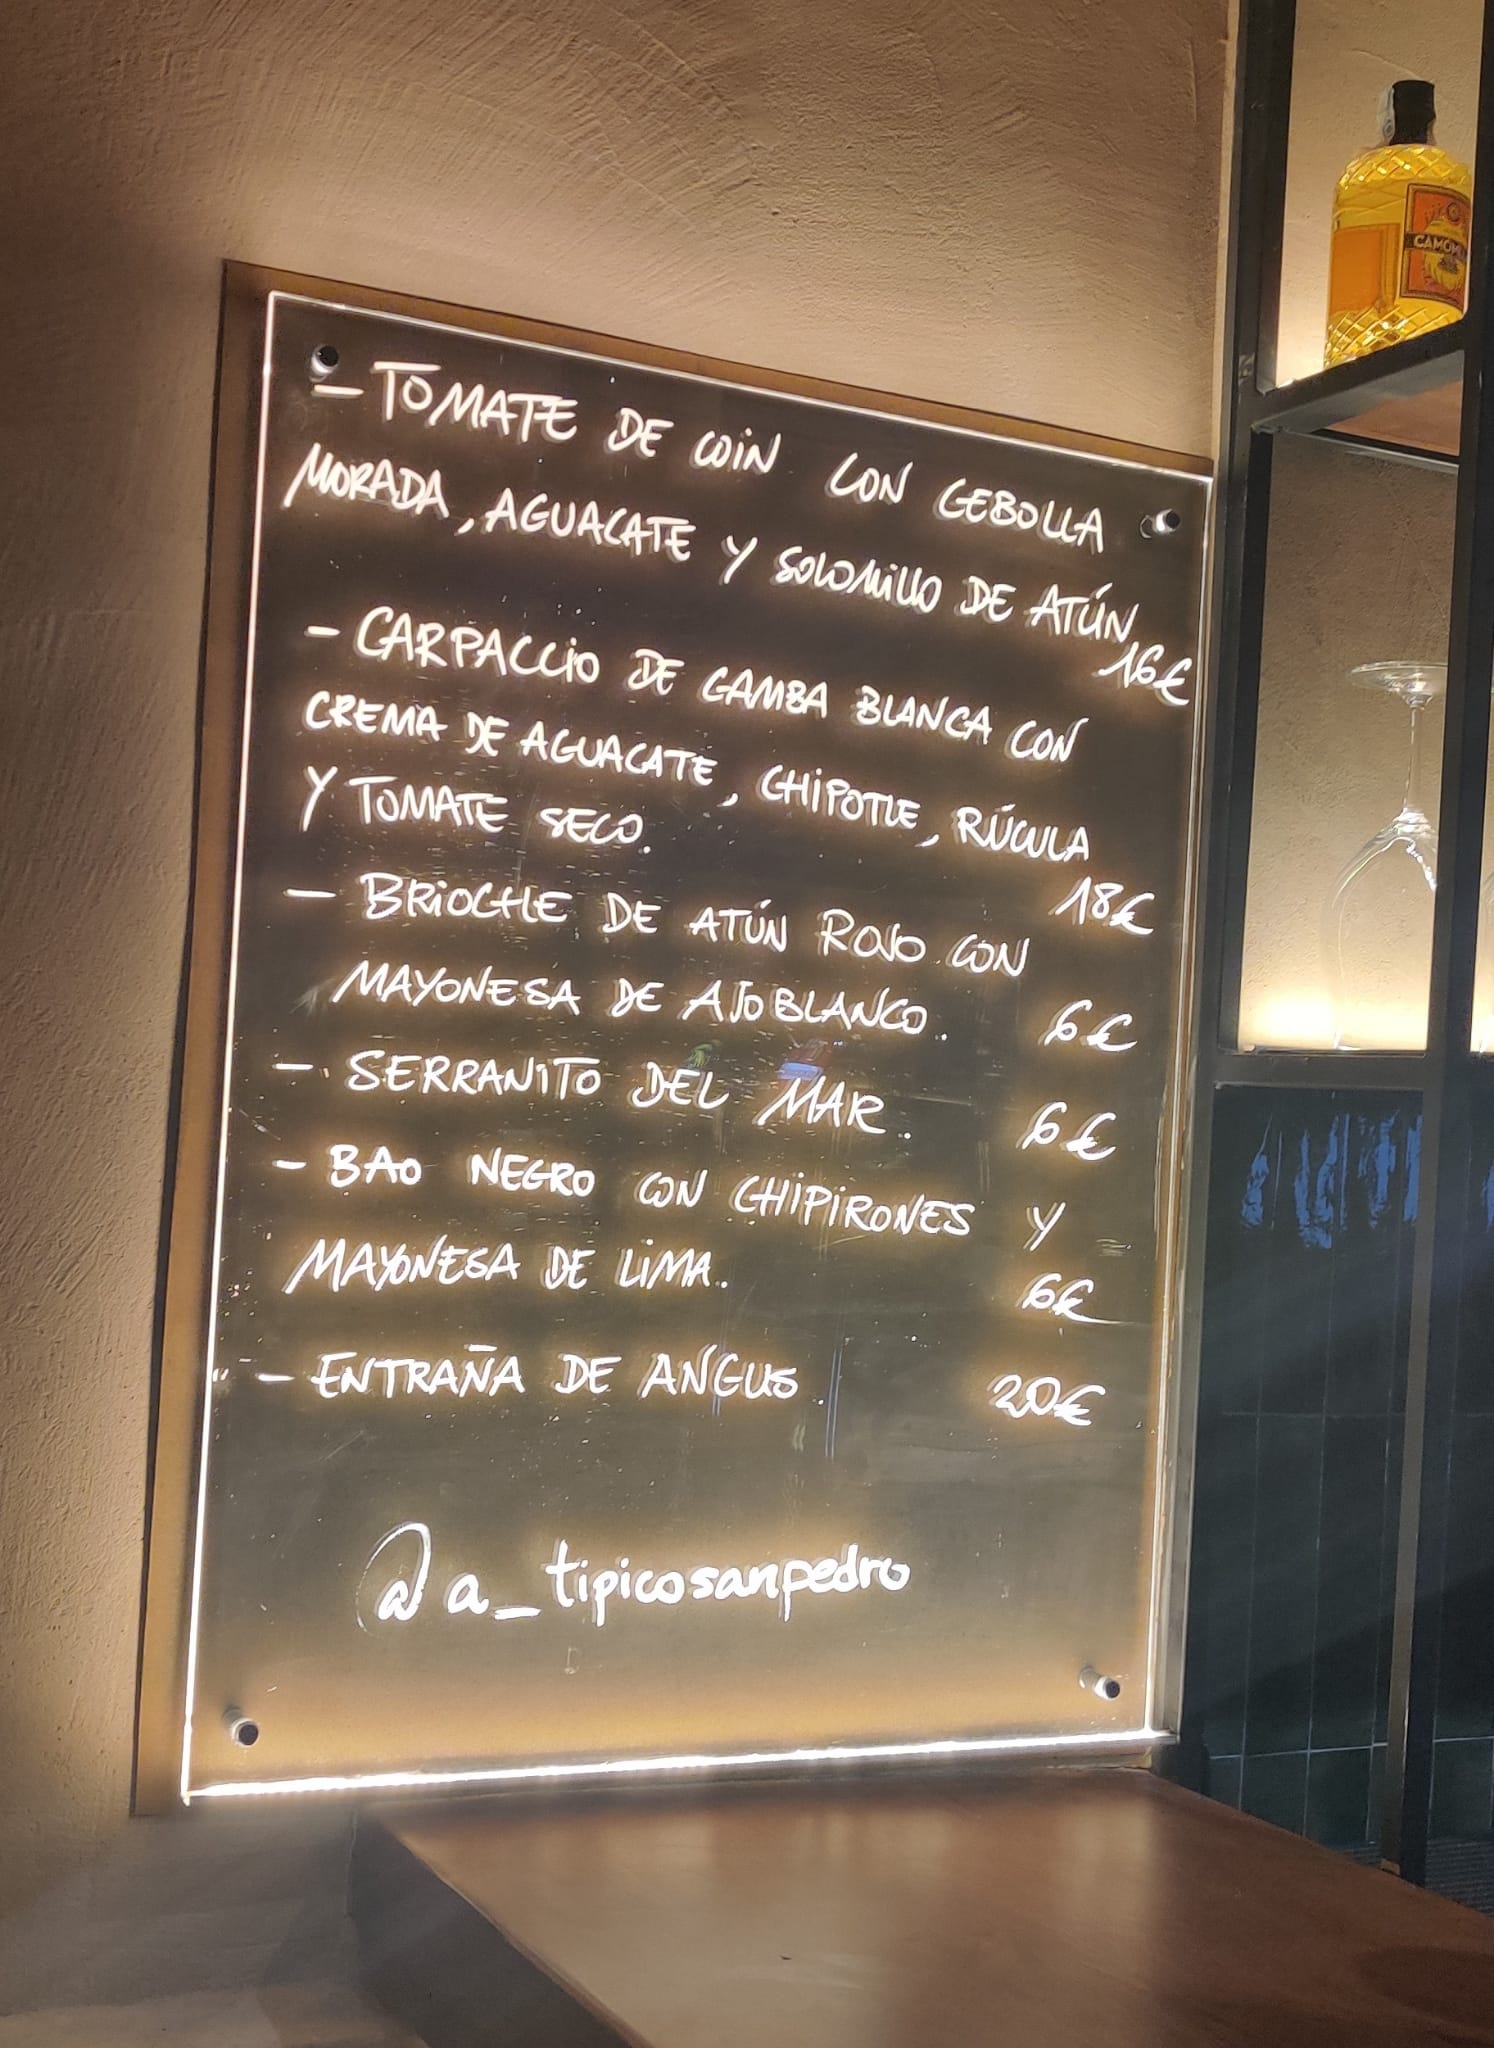 - TOMATE DE COIN CON CEBOLLA
MORADA, AGUACATE Y SOLOMILLO DE ATÚN
16€
- CARPACCIO DE GAMBA BLANCA CON
CREMA DE AGUACATE, CHIPOTLE, RÚCULA
Y TOMATE SECO.
18€
- BRIOCHE DE ATÚN ROJO CON
MAYONESA DE AJOBLANCO. 6€
- SERRANITO DEL MAR. 6€
- BAO NEGRO CON CHIPIRONES Y
MAYONESA DE LIMA. 6€
- ENTRAÑA DE ANGUS 20€
@a_tipicosanpedro